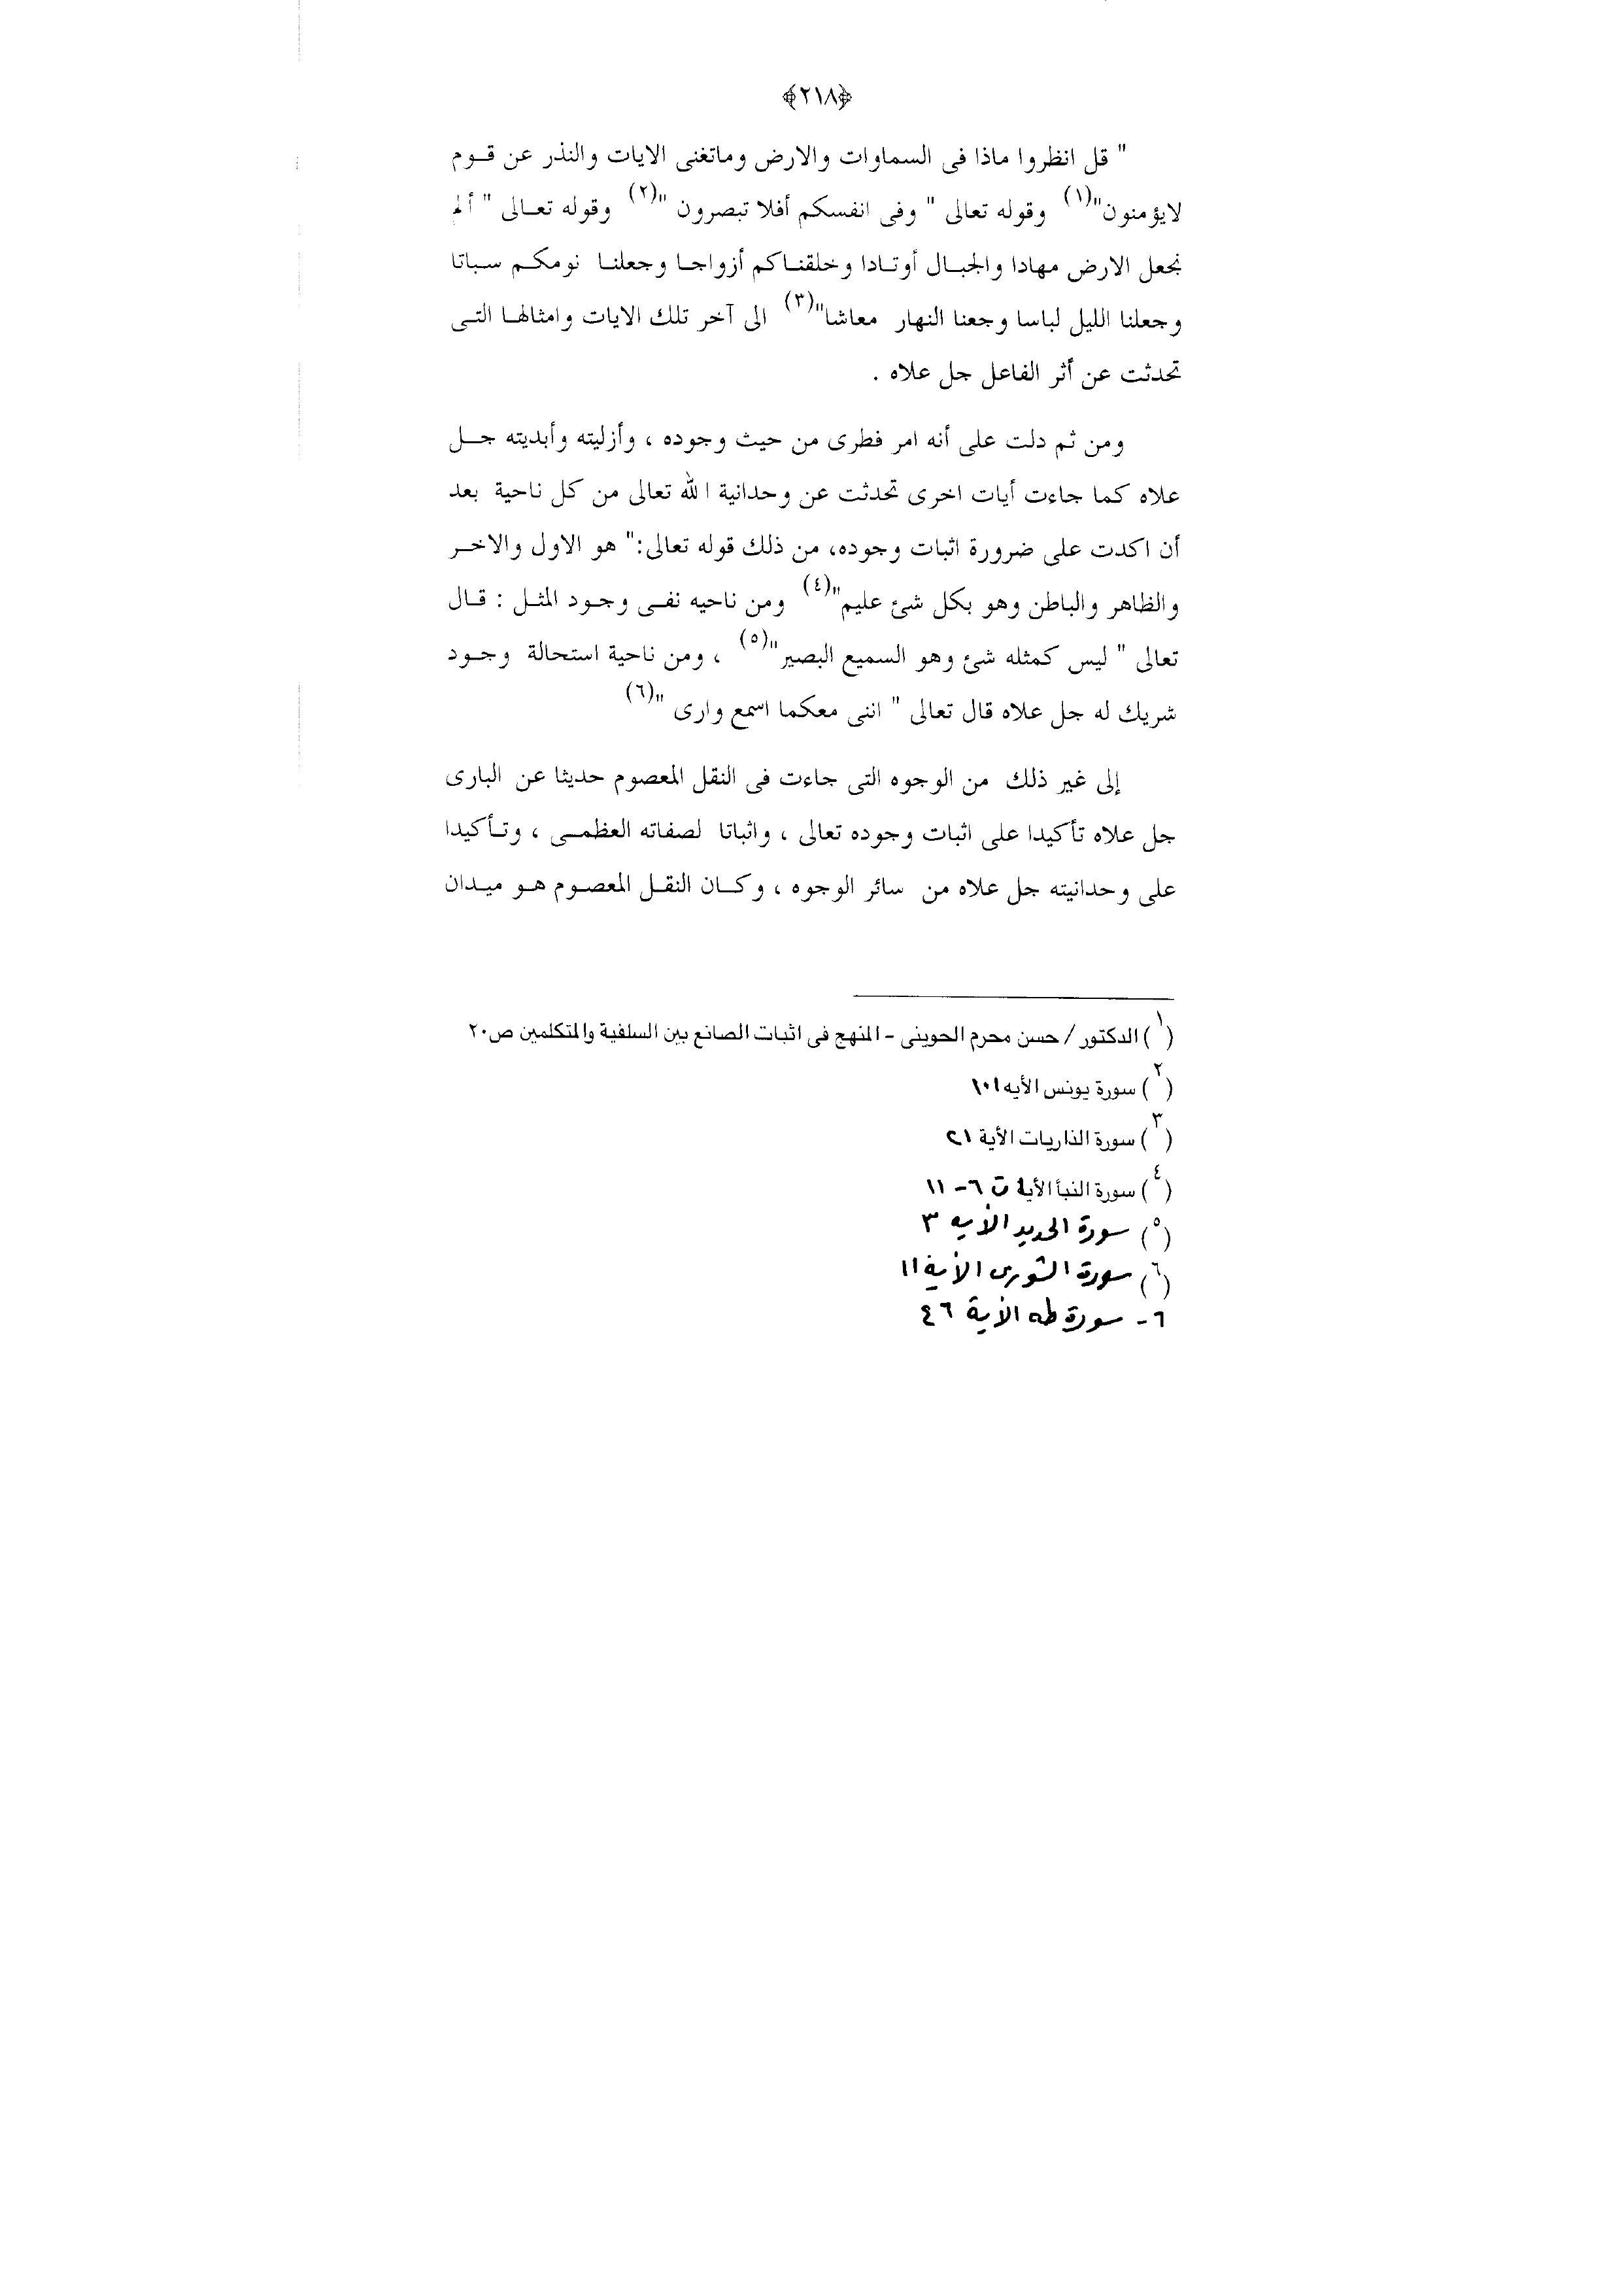 ﴿٢١٨﴾
" قل انظروا ماذا فى السماوات والارض وماتغنى الايات والنذر عن قوم
لايؤمنون"(١) وقوله تعالى " وفى انفسكم أفلا تبصرون "(٢) وقوله تعالى " ألم
نجعل الارض مهادا والجبال أوتادا وخلقناكم أزواجا وجعلنا نومكم سباتا
وجعلنا الليل لباسا وجعنا النهار معاشا"(٣) الى آخر تلك الايات وامثالها التى
تحدثت عن أثر الفاعل جل علاه .
ومن ثم دلت على أنه امر فطرى من حيث وجوده ، وأزليته وأبديته جل
علاه كما جاءت أيات اخرى تحدثت عن وحدانية الله تعالى من كل ناحية بعد
أن اكدت على ضرورة اثبات وجوده، من ذلك قوله تعالى:" هو الاول والاخر
والظاهر والباطن وهو بكل شئ عليم"(٤) ومن ناحيه نفى وجود المثل : قال
تعالى " ليس كمثله شئ وهو السميع البصير"(٥) ، ومن ناحية استحالة وجود
شريك له جل علاه قال تعالى " اننى معكما اسمع وارى "(٦)
إلى غير ذلك من الوجوه التى جاءت فى النقل المعصوم حديثا عن البارى
جل علاه تأكيدا على اثبات وجوده تعالى ، واثباتا لصفاته العظمى ، وتأكيدا
على وحدانيته جل علاه من سائر الوجوه ، وكان النقل المعصوم هو ميدان
(١) الدكتور / حسن محرم الحوينى - المنهج فى اثبات الصانع بين السلفية والمتكلمين ص٢٠
(٢) سورة يونس الأيه ١٠١
(٣) سورة الذاريات الأية ٢١
(٤) سورة النبأ الأيات ٦- ١١
(٥) سورة الحديد الأيه ٣
(٦) سورة الشورى الأية ١١
٦- سورة طه الأية ٤٦